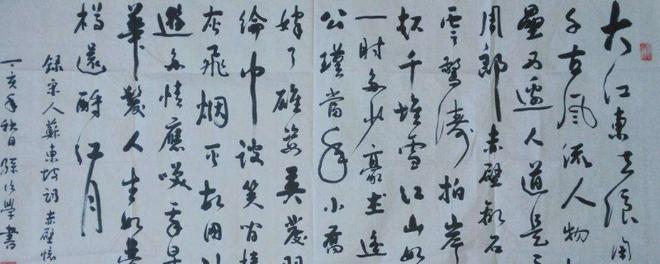 大江東去浪淘
千古風流人物
壘西邊人道是三
周郎赤壁亂石
雲驚濤拍岸
起千堆雪江山如
一時多少豪杰遥
公瑾當年小喬
嫁了雄姿英發羽
綸巾談笑間樯
灰飛烟滅故国
遊多情應笑我早
華髮人生如夢
樽還酹江月
錄宋人蘇東坡詞赤壁懷
丁亥年秋日學書